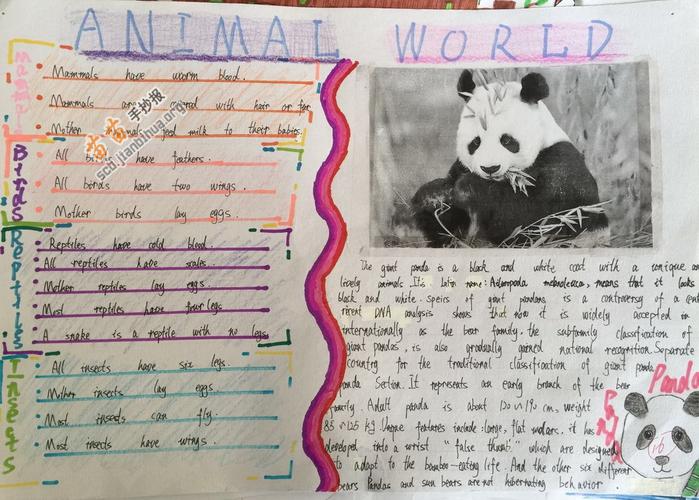 ANIMAL WORLD
Mammals
Mammals have worm blood.
Mammals covered with hair or fur
Mother feed milk to their babies.
Birds
All have feathers.
All birds have two wings.
Mother birds lay eggs.
Reptiles
Reptiles have cold blood.
All reptiles have scales.
Mother reptiles lay eggs.
Most reptiles have four legs
A snake is a reptile with no legs
Insects
All insects have six legs.
Mother insects lay eggs
Most insects can fly.
Most insects have wings.
手抄报
scb.jianbihua.org
The giant panda is a black and white coat with a
lively animals. It's latin name: means that it looks
black and white. Speirs of giant pandans is a controversy of a
DNA analysis shows that now it is widely accepted in
internationally as the bear family, the subfamily classification of
giant pandas, is also gradually gained national recognition. Separate
country for the traditional classification of giant panda
Section. It represents an early branch of the bear
family. Adult panda is about 120~190 cm, weight
85~125 kg. features include: large, flat molars, it has
developed into a wrist "false thumb" which are designed
to adapt to the bamboo-eating life. And the other six different
bears Pandas and sun bears are not hibernating behavior.
Panda